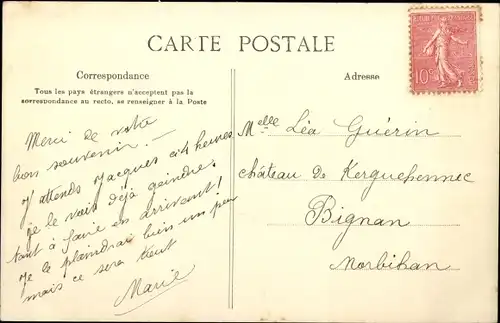 CARTE POSTALE
Correspondance
Tous les pays étrangers n'acceptent pas la
correspondance au recto, se renseigner à la Poste
Adresse
REPUBLIQUE FRANÇAISE
10c
Merci de votre
bon souvenir. —
J'attends Jacques à 4 heures
je le vois déjà geindre.
tant à faire en arrivant!
Je le plaindrai bien un peu
mais ce sera tout
Marie
Melle Léa Guérin
château de Kerguehennec
Bignan
Morbihan